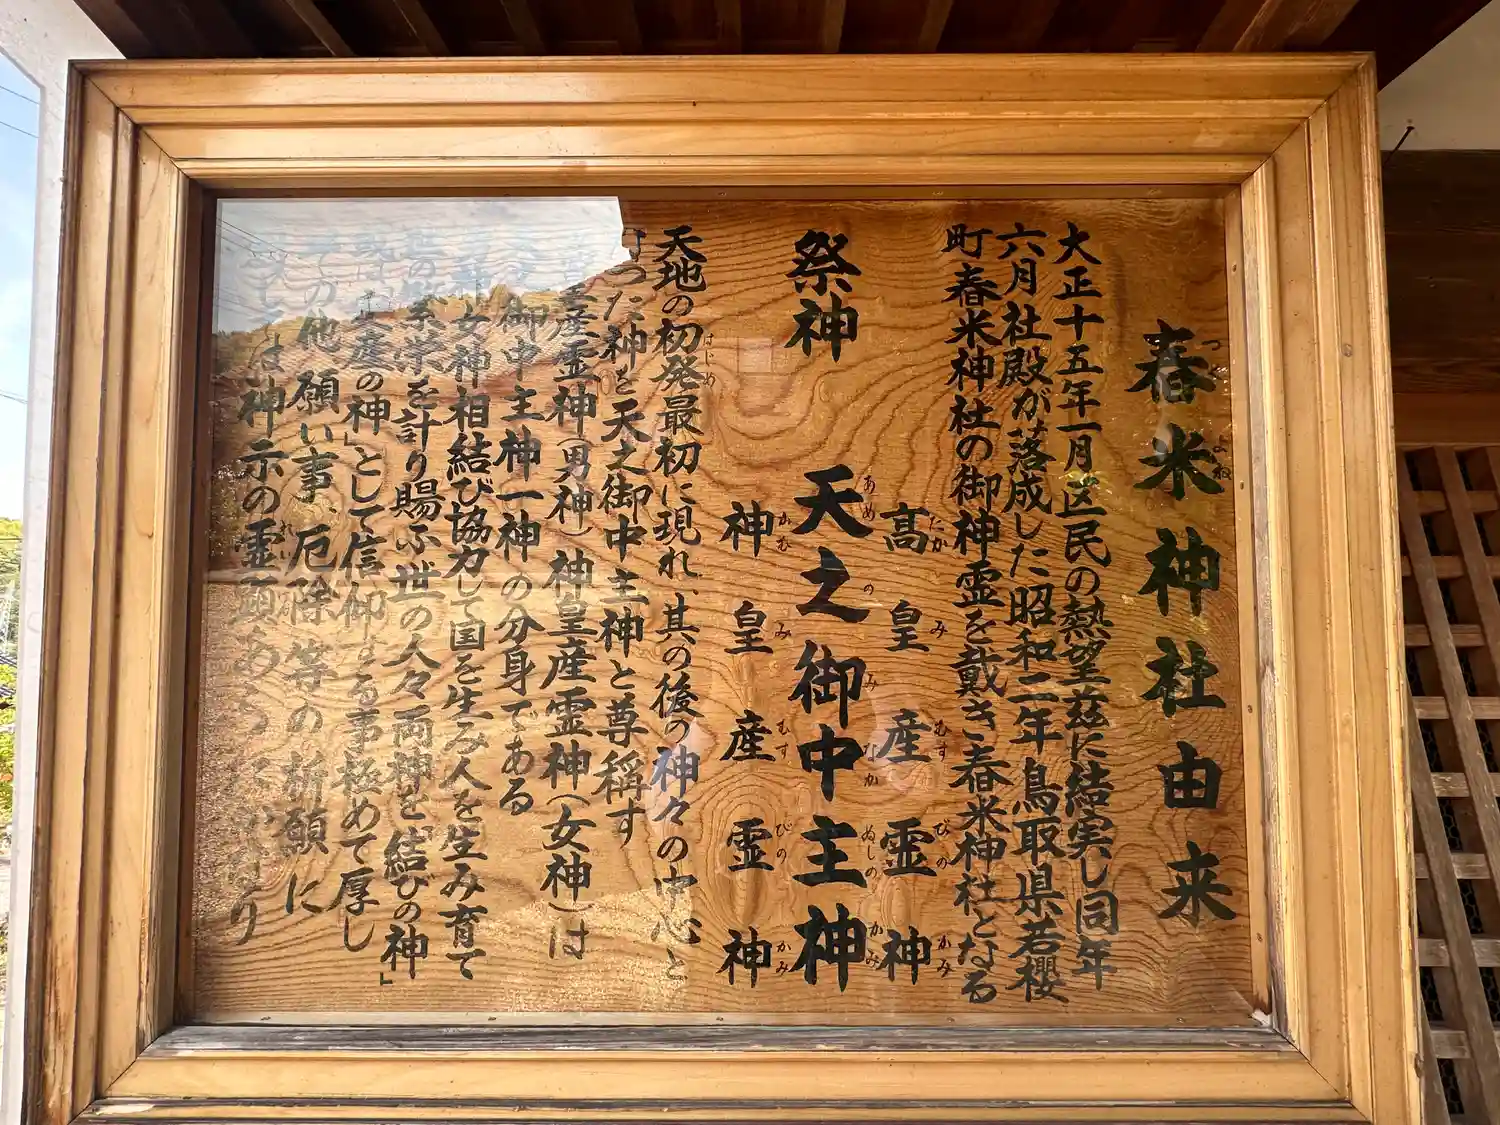 春米神社由来
つく よね
大正十五年一月区民の熱望茲に結実し同年
六月社殿が落成した昭和二年鳥取県若櫻
町春米神社の御神霊を戴き春米神社となる
祭神
高皇産霊神
たか み むす びの かみ
天之御中主神
あめ の み なか ぬしの かみ
神皇産霊神
かむ み むす びの かみ
天地の初発最初に現れ、其の後の神々の中心と
はじめ
なった神を天之御中主神と尊稱す
皇産霊神(男神)神皇産霊神(女神)は
御中主神一神の分身である
神女神相結び協力して国を生み人を生み育て
繁栄を計り賜ふ世の人々両神を「結びの神」
或は「安産の神」として信仰する事極めて厚し
その他願い事、厄除等の祈願に
しては神示の霊顕あらたかなり
れい